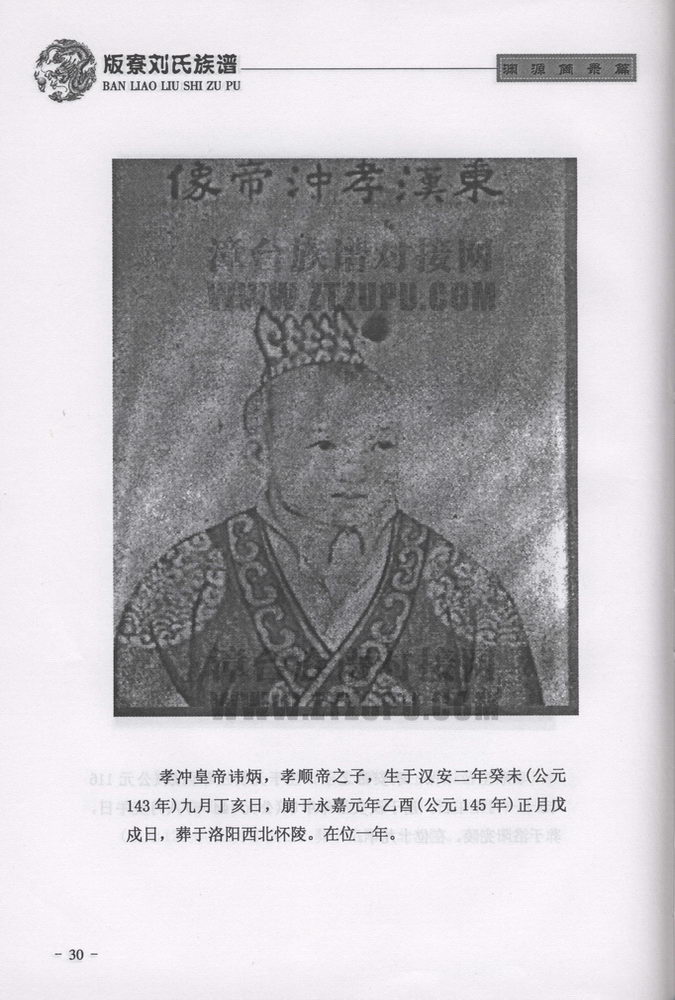 版寮刘氏族谱
BAN LIAO LIU SHI ZU PU
渊源简录篇
東漢孝沖帝像
漳台族谱对接网
WWW.ZTZUPU.COM
漳台族谱对接网
WWW.ZTZUPU.COM
孝冲皇帝讳炳，孝顺帝之子，生于汉安二年癸未(公元
143年)九月丁亥日，崩于永嘉元年乙酉(公元145年)正月戊
戍日，葬于洛阳西北怀陵。在位一年。
- 30 -